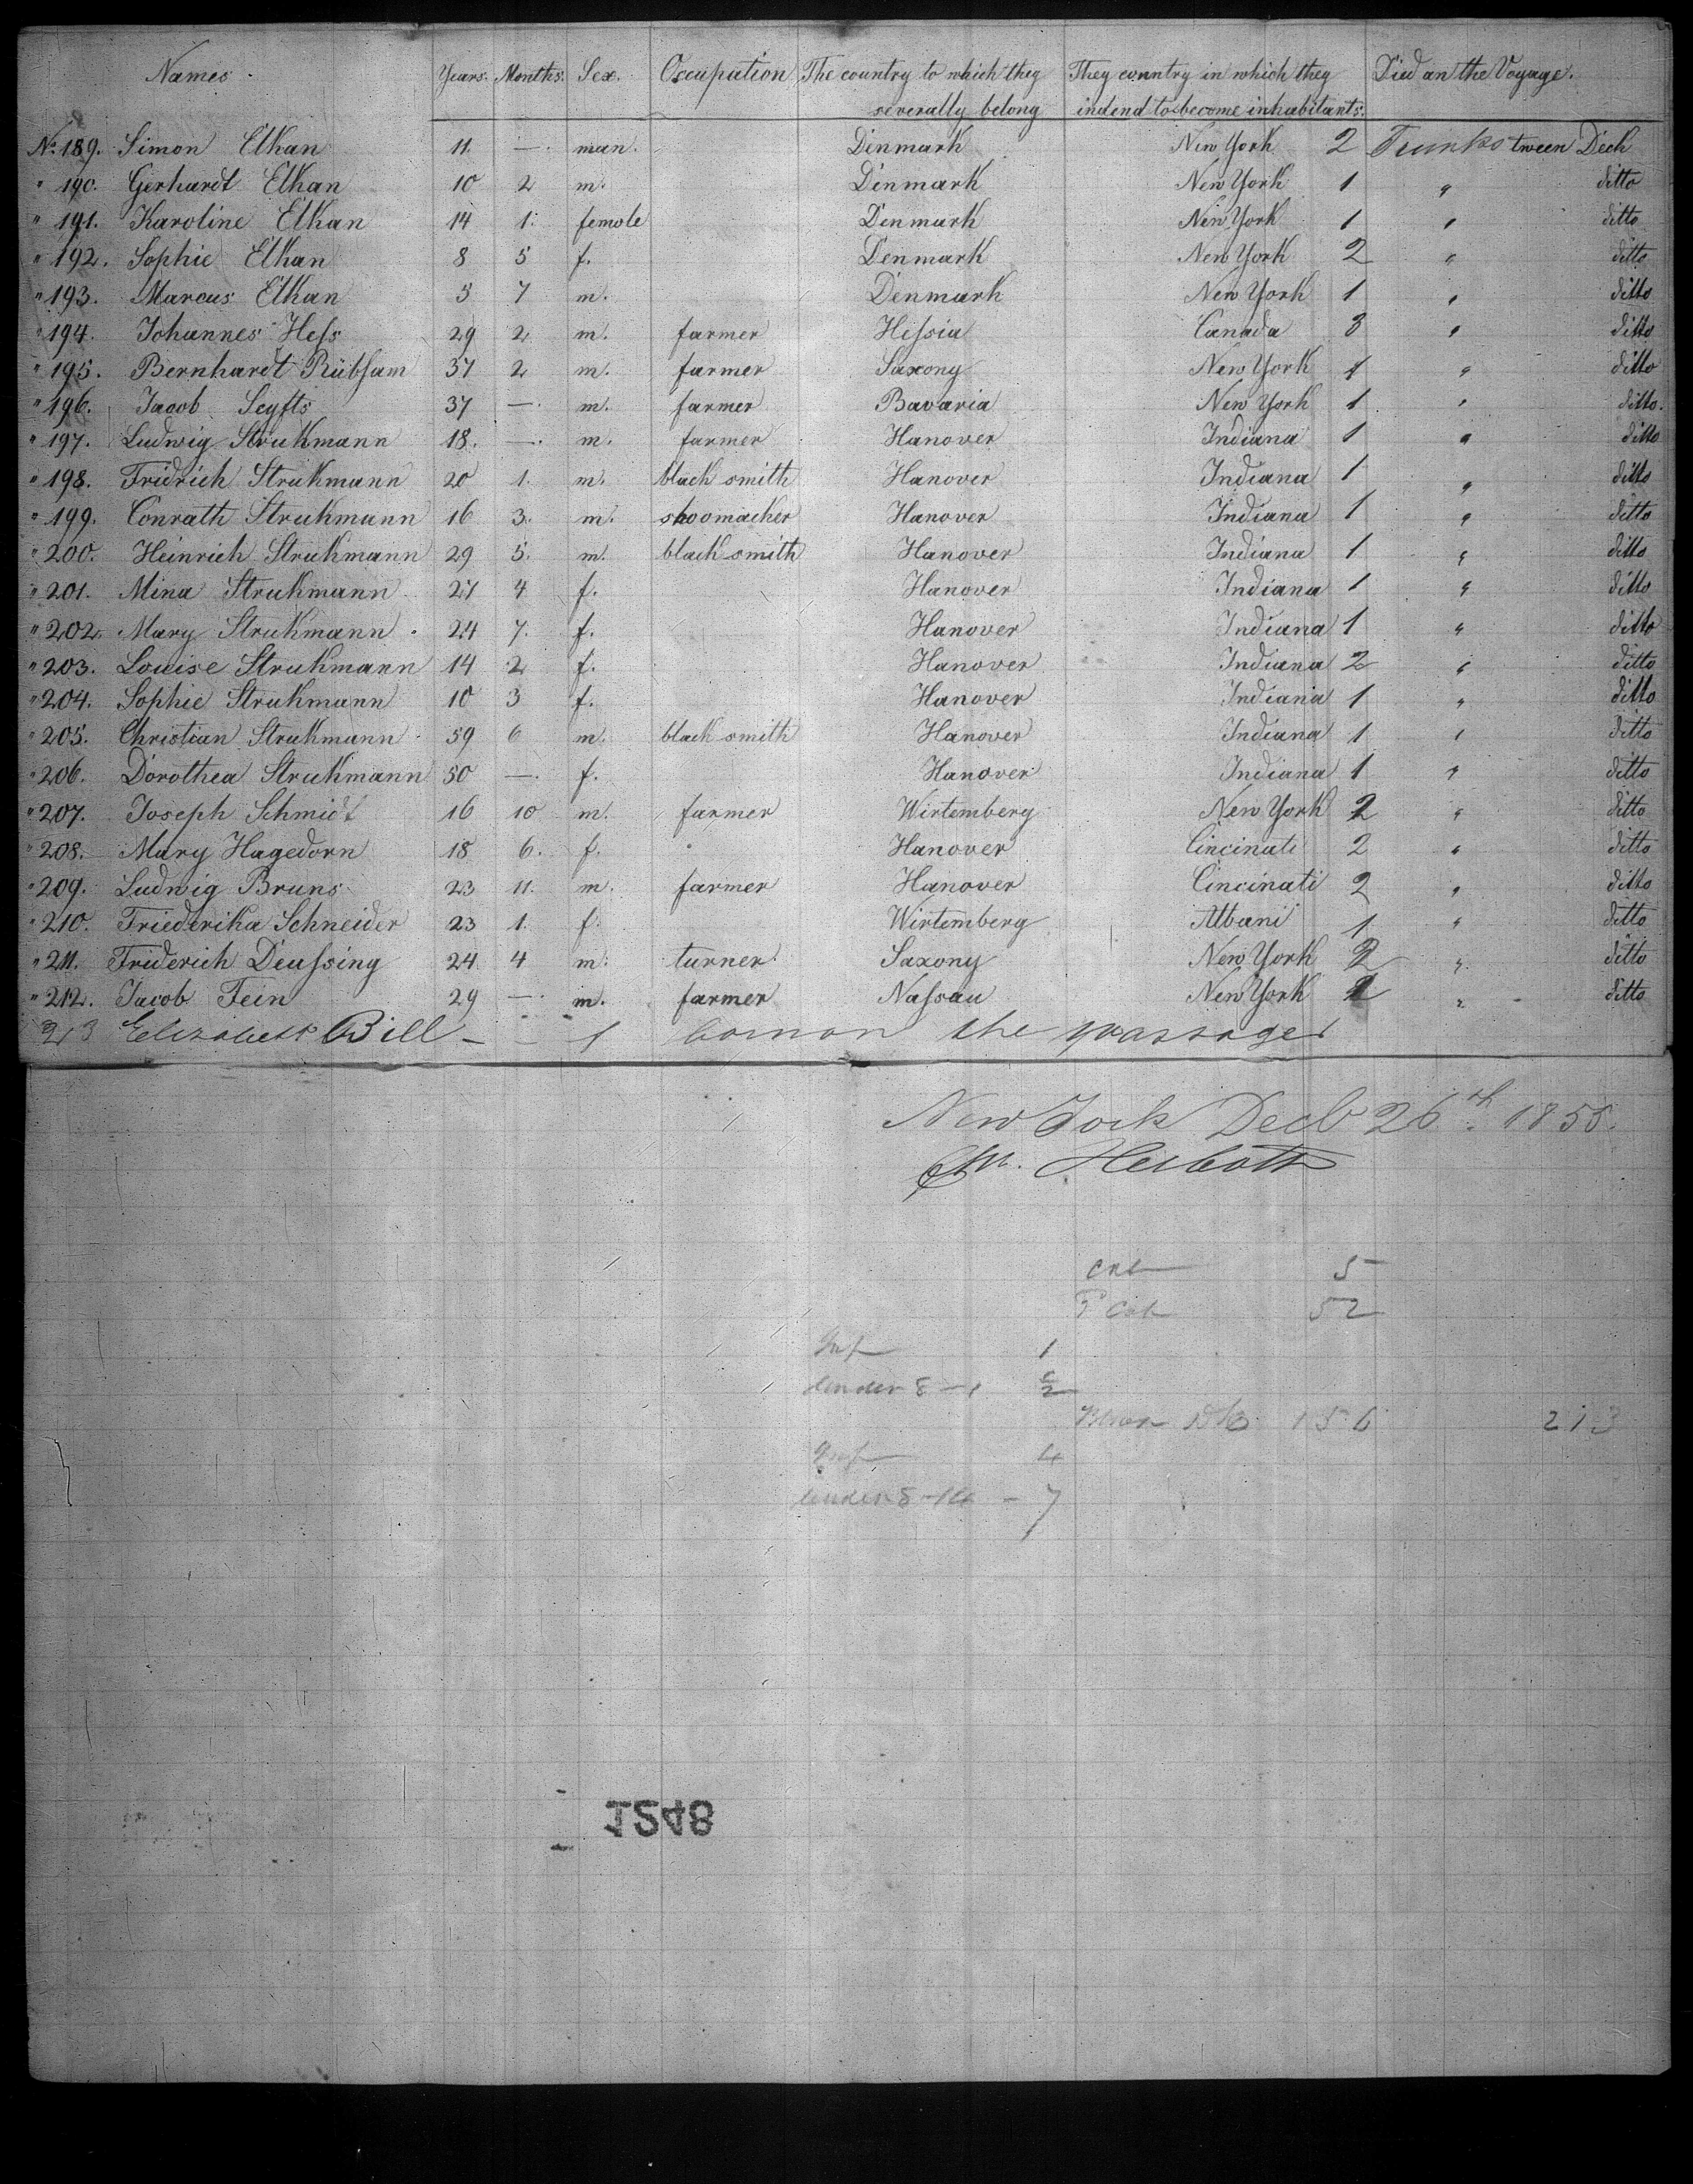 Names. Years. Months. Sex. Occupation The country to which they They conntry in which they Died an the Voyage.
severally belong indend to become inhabitants.
No. 189. Simon Elkan 11. —. man. Denmark New York 2 Trunks tween Deck
" 190. Gerhardt Elkan 10 2 m. Denmark New York 1 " ditto
" 191. Karoline Elkan 14 1. female Denmark New York 1 " ditto
" 192. Sophie Elkan 8 5 f. Denmark New York 2 " ditto
" 193. Marcus Elkan 5 7 m. Denmark New York 1 " ditto
" 194. Johannes Heſs 29 2 m. farmer Heſsia Canada 3 " ditto
" 195. Bernhardt Rübſam 37 2 m. farmer Saxony New York 1 " ditto
" 196. Jacob Seyfts 37 — m. farmer Bavaria New York 1 " ditto.
" 197. Ludwig Strukmann 18. —. m. farmer Hanover Indiana 1 " ditto
" 198. Fridrich Strukmann 20 1. m. black smith Hanover Indiana 1 " ditto
" 199. Conrath Strukmann 16 3. m. shoomacker Hanover Indiana 1 " ditto
" 200. Heinrich Strukmann 29 5. m. black smith Hanover Indiana 1 " ditto
" 201. Mina Strukmann 27 4 f. Hanover Indiana 1 " ditto
" 202. Mary Strukmann 24 7. f. Hanover Indiana 1 " ditto
" 203. Louise Strukmann 14 2 f. Hanover Indiana 2 " ditto
" 204. Sophie Strukmann 10 3 f. Hanover Indiana 1 " ditto
" 205. Christian Strukmann 59 6 m. black smith Hanover Indiana 1 " ditto
" 206. Dorothea Strukmann 50 —. f. Hanover Indiana 1 " ditto
" 207. Joseph Schmidt 16 10 m. farmer Wirtemberg New York 2 " ditto
" 208. Mary Hagedorn 18 6. f. Hanover Cincinati 2 " ditto
" 209. Ludwig Bruns 23 11. m. farmer Hanover Cincinati 2 " ditto
" 210. Friederika Schneider 23 1. f. Wirtemberg Albani 1 " ditto
" 211. Friderich Deuſsing 24 4 m. turner Saxony New York 2 " ditto
" 212. Jacob Fein 29 —. m. farmer Naſsau New York " ditto
213 Elizabeth Bill — — f born on the passage
New York Decb 26th 1855.
5
52
Inf 1
under 8 — 2
156 213
Inf 4
under 8 - 14 — 7
1248